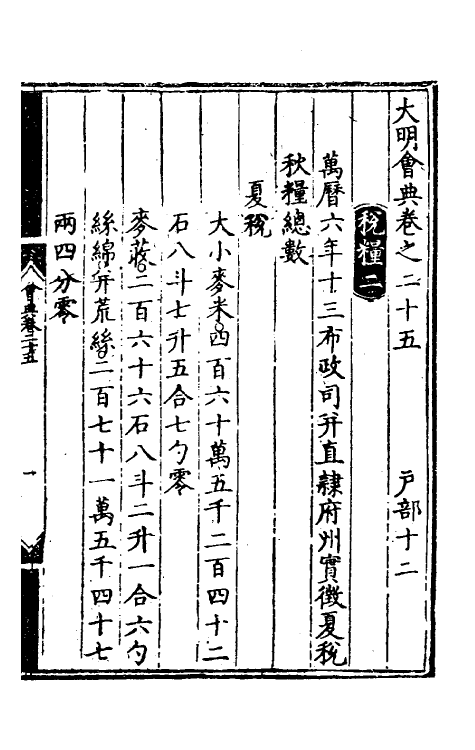 大明會典卷之二十五　戶部十二
稅糧二
萬曆六年十三布政司并直隸府州實徵夏稅
秋糧總數
夏稅
大小麥米四百六十萬五千二百四十二
石八斗七升五合七勺零
麥蕎二百六十六石八斗二升一合六勺
絲綿并荒絲二百七十一萬五千四十七
兩四分零
會典卷二十五
一